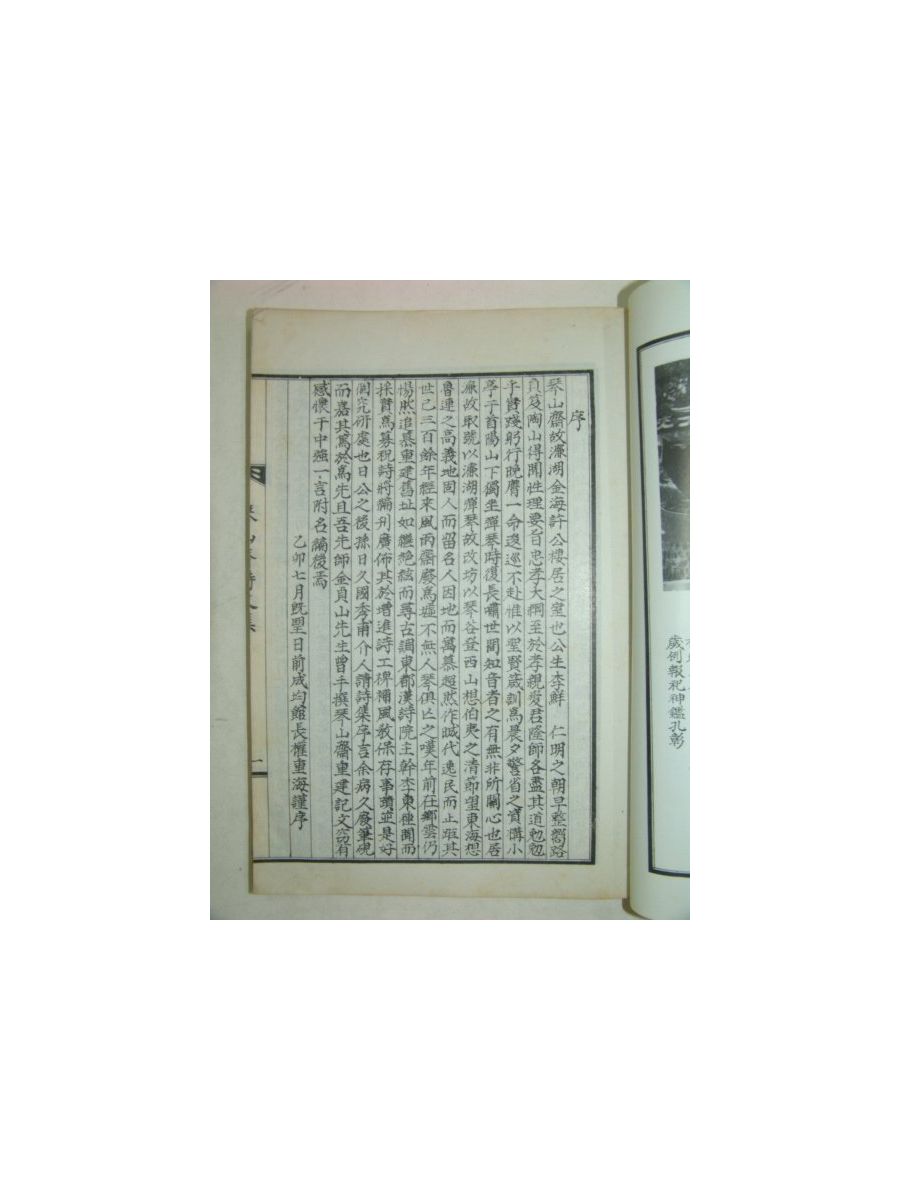 歲例報祀神鑑孔彰
序
琴山齋故濂湖金海許公棲居之室也公生李鮮 仁明之朝早整嚮路
負笈陶山得聞性理要旨忠孝大綱至於孝親愛君隆師各盡其道勉勉
乎實踐躬行晚膺一命逡巡不赴惟以聖賢箴訓爲晨夕警省之資構小
亭于首陽山下獨坐彈琴時復長嘯世間知音者之有無非所關心也居
濂故取號以濂湖彈琴故改坊以琴谷登西山想伯夷之清節望東海想
魯連之高義地因人而留名人因地而寓慕超然作 代逸民而止距其
世已三百餘年經來風雨齋廢爲墟不無人琴俱亡之嘆年前在鄉雲仍
惕然追慕重建舊址如繼絶絃而尋古調東都漢詩院主幹李東種聞而
採實爲募祝詩將編刊廣佈其於增進詩工裨補風敎保存事蹟並是好
個究研處也日公之後孫日久國秀甫介人請詩集序言余病久廢筆硯
而嘉其爲於爲先且吾先師金貞山先生曾手撰琴山齋重建記文窃有
感懷于中強一言附名編後焉
乙卯七月旣望日前成均館長權重海謹序
一